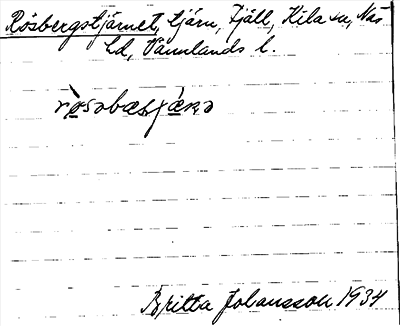 Rösbergstjärnet, tjärn, Fjäll, Kila sn, Näs
hd, Värmlands l.
Britta Johansson 1934